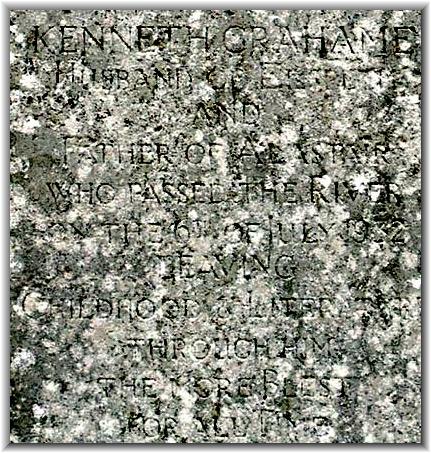 KENNETH GRAHAME
HUSBAND OF ELSPETH
AND
FATHER OF ALASTAIR
WHO PASSED THE RIVER
ON THE 6TH OF JULY 1932
LEAVING
CHILDHOOD & LITERATURE
THROUGH HIM
THE MORE BLEST
FOR ALL TIME